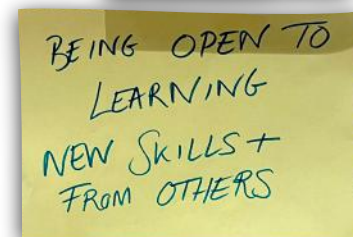 BEING OPEN TO
LEARNING
NEW SKILLS +
FROM OTHERS